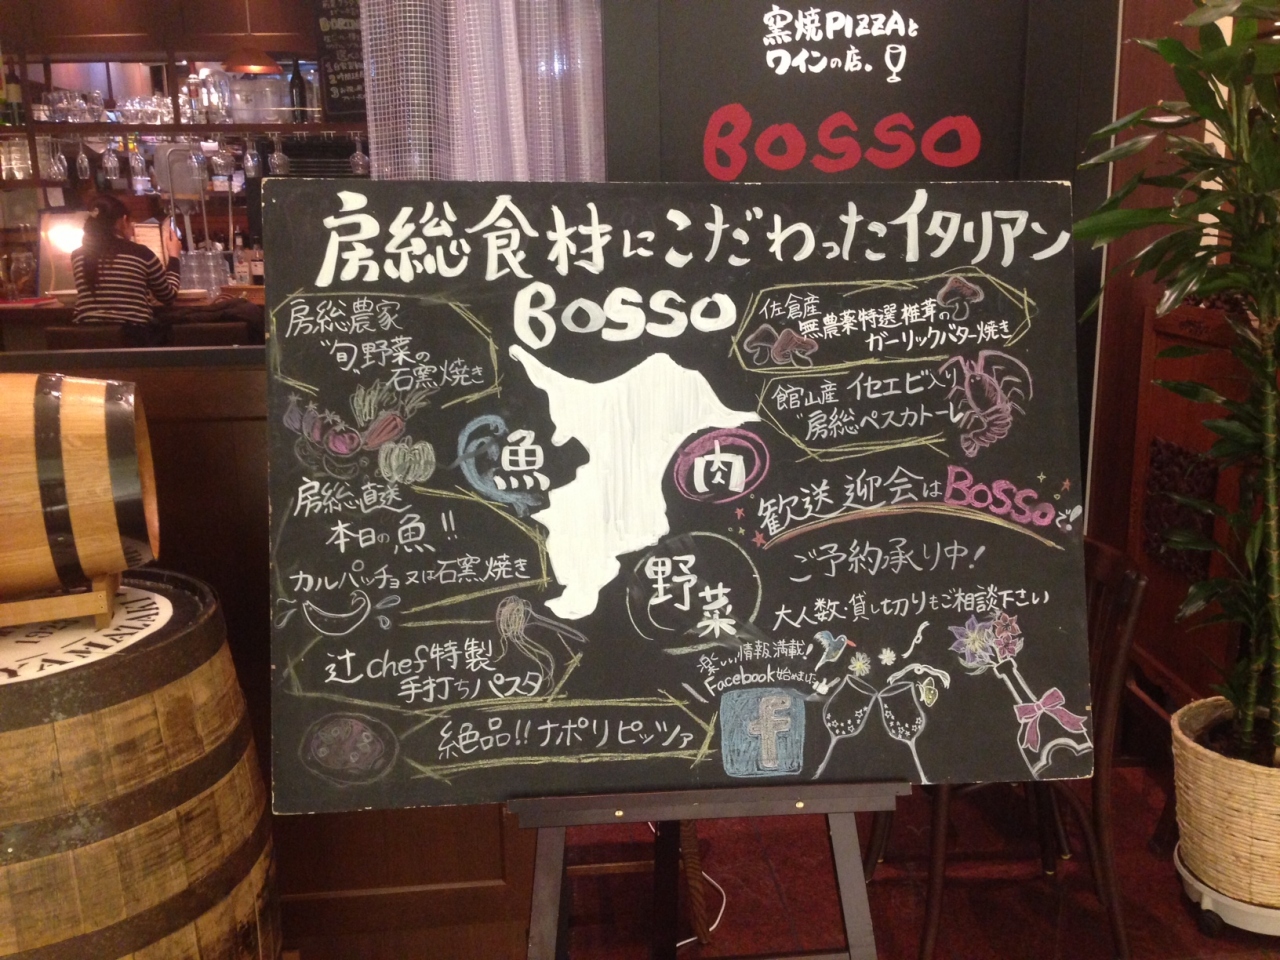 窯焼PIZZAと
ワインの店。
BOSSO
房総食材にこだわったイタリアン
BOSSO
房総農家
"旬"野菜の
石窯焼き
佐倉産
無農薬特選椎茸の
ガーリックバター焼き
館山産 イセエビ入り
"房総ペスカトーレ
魚
肉
野菜
房総直送
本日の魚!!
カルパッチョ又は石窯焼き
歓送迎会はBOSSOで!
ご予約承り中!
大人数・貸し切りもご相談下さい
辻chef特製
手打ちパスタ
楽しい情報満載!
Facebook始めました
f
絶品!!ナポリピッツァ